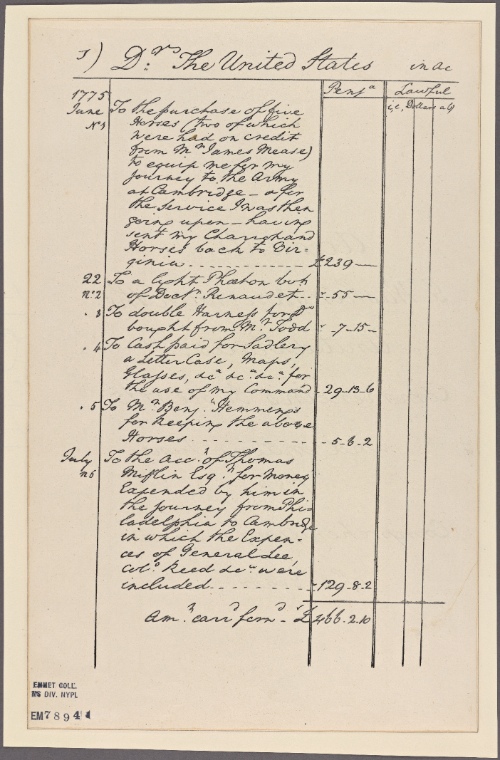 Drs. The United States in ac
Pensa Lawful
1775 i,e, Dollars a 6/
June To the purchase of five
No 1 Horses (two of which
were had on credit
from Mr James Mease)
to equip me for my
journey to the Army
at Cambridge – & for
the service I was then
going upon – having
sent my Chariot and
Horses back to Vir-
ginia £239 –
22 To a light Phæton bot
no. 2 of Doctr. Renaudet - 55 –
. 3 To double Harness for Do
bought from Mr. Todd - 7.15 –
. 4 To Cash paid for Sadlery
a Letter Case, Maps,
Glasses, &c &c &c. for
the use of my Command - 29.13.6
. 5 To Mr Benj. Hemmings
for keeping the above
Horses - 5.6.2
July To the Acct. of Thomas
Mifflin Esqr. for money
Expended by him in
the journey from Phi
ladelphia to Cambridge
in which the Expen-
ces of General Lee,
Colo. Reed &c. were
included - 129.8.2
Amt. carrd. forwd. £466.2.10
EMMET COLL.
MS DIV. NYPL
EM7894